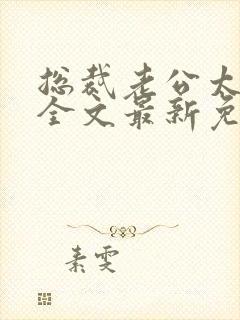 总裁老公太
全文最新免
素雯